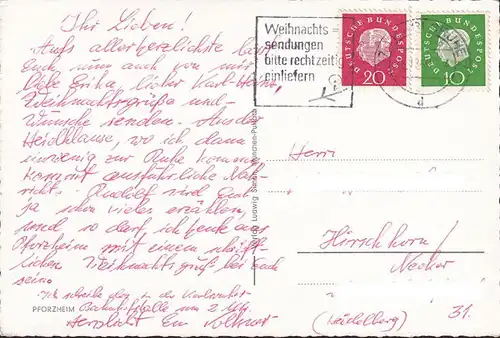 Ihr Lieben!
Aufs allerherzlichste laßt
Euch, nun auch von mir
liebe Erika, lieber Karl Heinz,
Weihnachtsgrüße und
Wünsche senden. Aus der
Heidklause, wo ich dann
ein wenig zur Ruhe komme
kommt ausführliche Nach-
richt. Rudolf wird Euch
ja schon vieles erzählen,
und so darf ich heute aus
Pforzheim mit einem schrift-
lichen Weihnachtsgruß bei Euch
sein.
Ich schreibe in der Karlsruher
Bahnhofshalle um 2 Uhr
PFORZHEIM
Herzlichst Eure
Weihnachts-
sendungen
bitte rechtzeitig
einliefern
DEUTSCHE BUNDESPOST
20
DEUTSCHE BUNDESPOST
10
a
Ludwig
München
Herrn
Hirschhorn/
Neckar
31.
(Heidelberg)